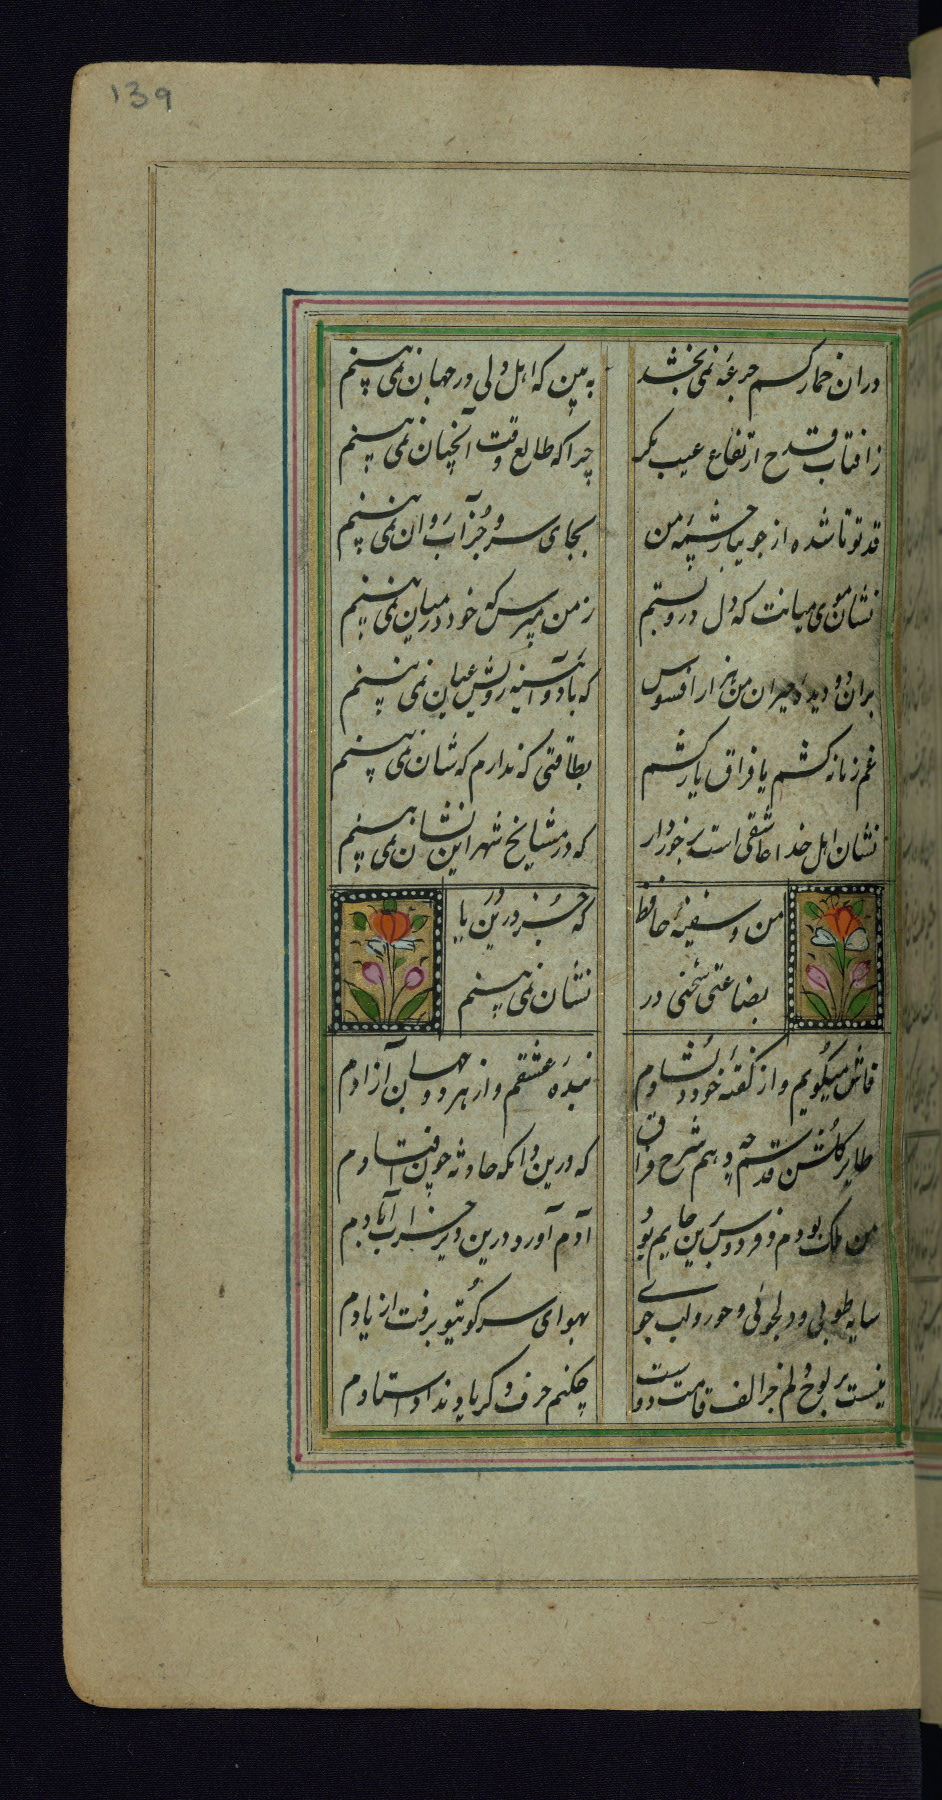 139
دران خمار کسم جرعهٔ نمی بخشد به بین که اهل دلی در جهان نمی بینم
ز افتاب قدح ارتفاع عیب بگیر چرا که طالع وقت آنچنان نمی بینم
قد تو تا شده از جویبار چشمهٔ من بجای سرو جز آب روان نمی بینم
نشان موی میانت که دل درو بستم ز من مپرس که خود در میان نمی بینم
بران دو دیده حیران من هزار افسوس که با دو آینه رویش عیان نمی بینم
غم زمانه کشم یا فراق یار کشم بطاقتی که ندارم که شان نمی بینم
نشان اهل خدا عاشقی است برخوردار که در مشایخ شهر این نشان نمی بینم
من و سفینهٔ حافظ که جز درین دریا
بضاعتی سخنی در نشان نمی بینم
فاش میگویم و از گفتهٔ خود دلشادم بندهٔ عشقم و از هر دو جهان آزادم
طایر گلشن قدسم چه دهم شرح فراق که درین دامگه حادثه چون افتادم
من ملک بودم و فردوس برین جایم بود آدم آورد درین دیر خراب آبادم
سایه طوبی و دلجوئی و حور و لب جوی بهوای سر کوی تو برفت از یادم
نیست بر لوح دلم جز الف قامت دوست چکنم حرف دگر یاد نداد استادم